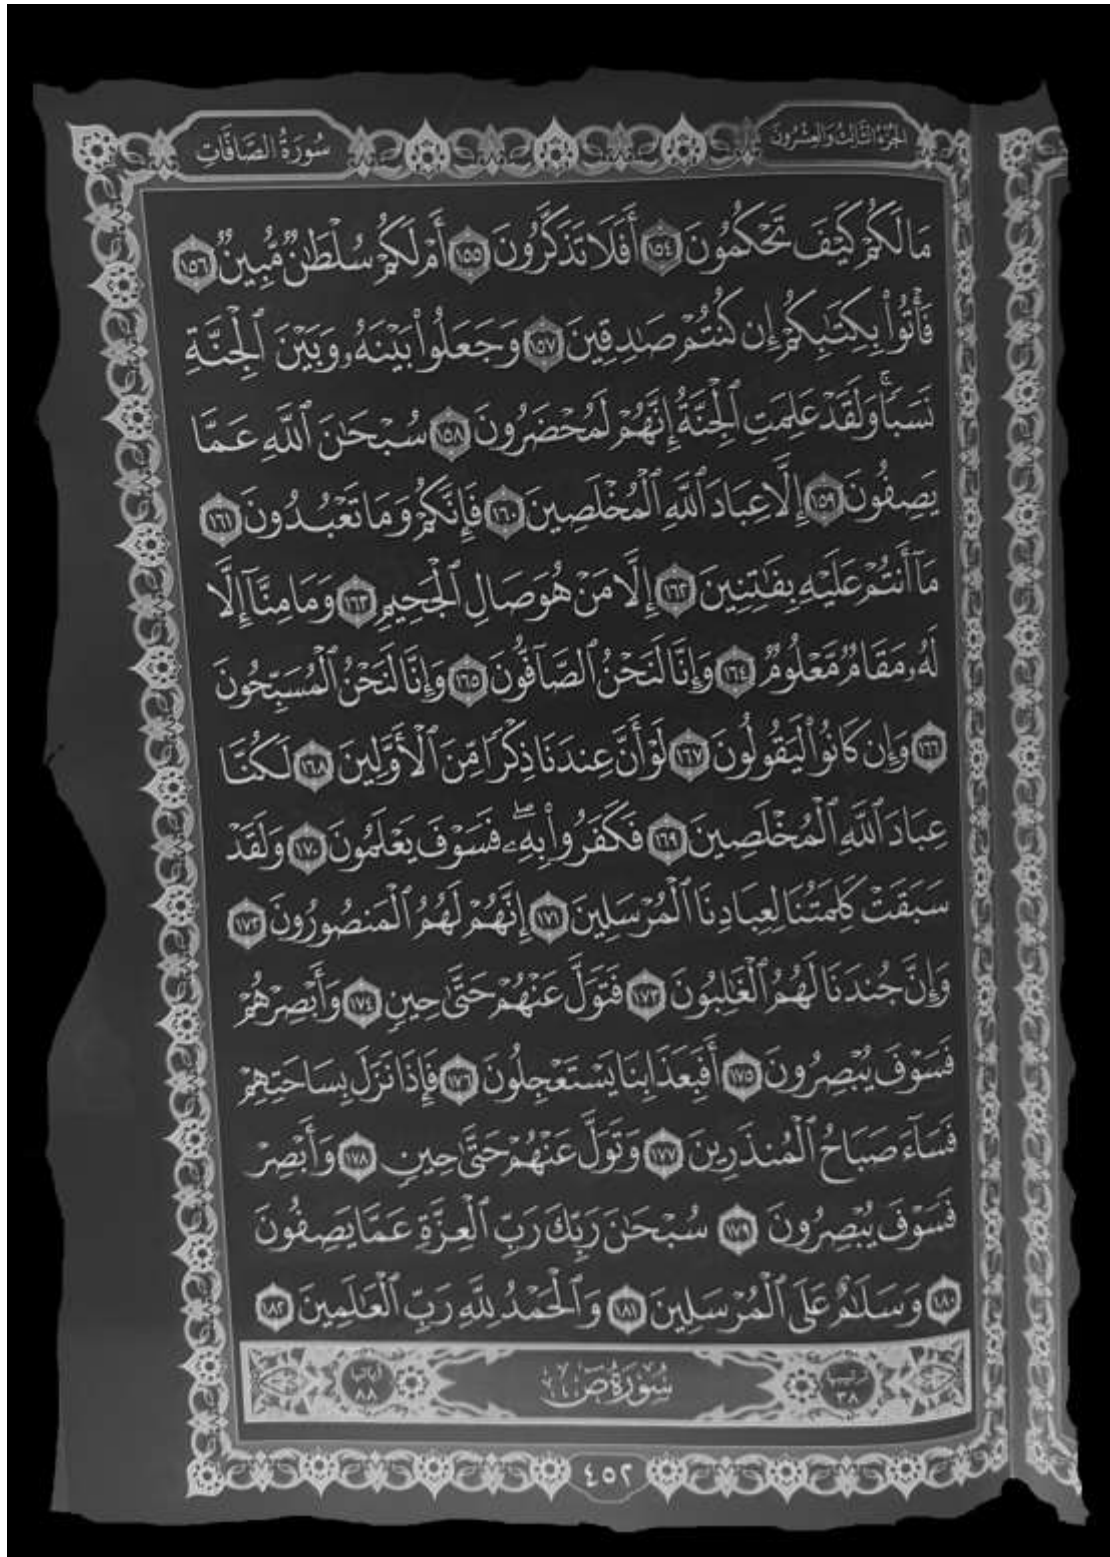 الجزء الثالث والعشرون
سورة الصافات
مَا لَكُمْ كَيْفَ تَحْكُمُونَ ١٥٤ أَفَلَا تَذَكَّرُونَ ١٥٥ أَمْ لَكُمْ سُلْطَٰنٌ مُّبِينٌ ١٥٦
فَأْتُوا۟ بِكِتَٰبِكُمْ إِن كُنتُمْ صَٰدِقِينَ ١٥٧ وَجَعَلُوا۟ بَيْنَهُۥ وَبَيْنَ ٱلْجِنَّةِ
نَسَبًا ۚ وَلَقَدْ عَلِمَتِ ٱلْجِنَّةُ إِنَّهُمْ لَمُحْضَرُونَ ١٥٨ سُبْحَٰنَ ٱللَّهِ عَمَّا
يَصِفُونَ ١٥٩ إِلَّا عِبَادَ ٱللَّهِ ٱلْمُخْلَصِينَ ١٦٠ فَإِنَّكُمْ وَمَا تَعْبُدُونَ ١٦١
مَآ أَنتُمْ عَلَيْهِ بِفَٰتِنِينَ ١٦٢ إِلَّا مَنْ هُوَ صَالِ ٱلْجَحِيمِ ١٦٣ وَمَا مِنَّآ إِلَّا
لَهُۥ مَقَامٌ مَّعْلُومٌ ١٦٤ وَإِنَّا لَنَحْنُ ٱلصَّآفُّونَ ١٦٥ وَإِنَّا لَنَحْنُ ٱلْمُسَبِّحُونَ
١٦٦ وَإِن كَانُوا۟ لَيَقُولُونَ ١٦٧ لَوْ أَنَّ عِندَنَا ذِكْرًا مِّنَ ٱلْأَوَّلِينَ ١٦٨ لَكُنَّا
عِبَادَ ٱللَّهِ ٱلْمُخْلَصِينَ ١٦٩ فَكَفَرُوا۟ بِهِۦ ۖ فَسَوْفَ يَعْلَمُونَ ١٧٠ وَلَقَدْ
سَبَقَتْ كَلِمَتُنَا لِعِبَادِنَا ٱلْمُرْسَلِينَ ١٧١ إِنَّهُمْ لَهُمُ ٱلْمَنصُورُونَ ١٧٢
وَإِنَّ جُندَنَا لَهُمُ ٱلْغَٰلِبُونَ ١٧٣ فَتَوَلَّ عَنْهُمْ حَتَّىٰ حِينٍ ١٧٤ وَأَبْصِرْهُمْ
فَسَوْفَ يُبْصِرُونَ ١٧٥ أَفَبِعَذَابِنَا يَسْتَعْجِلُونَ ١٧٦ فَإِذَا نَزَلَ بِسَاحَتِهِمْ
فَسَآءَ صَبَاحُ ٱلْمُنذَرِينَ ١٧٧ وَتَوَلَّ عَنْهُمْ حَتَّىٰ حِينٍ ١٧٨ وَأَبْصِرْ
فَسَوْفَ يُبْصِرُونَ ١٧٩ سُبْحَٰنَ رَبِّكَ رَبِّ ٱلْعِزَّةِ عَمَّا يَصِفُونَ
١٨٠ وَسَلَٰمٌ عَلَى ٱلْمُرْسَلِينَ ١٨١ وَٱلْحَمْدُ لِلَّهِ رَبِّ ٱلْعَٰلَمِينَ ١٨٢
ترتيبها ٣٨ سُورَةُ صٓ آياتها ٨٨
٤٥٢